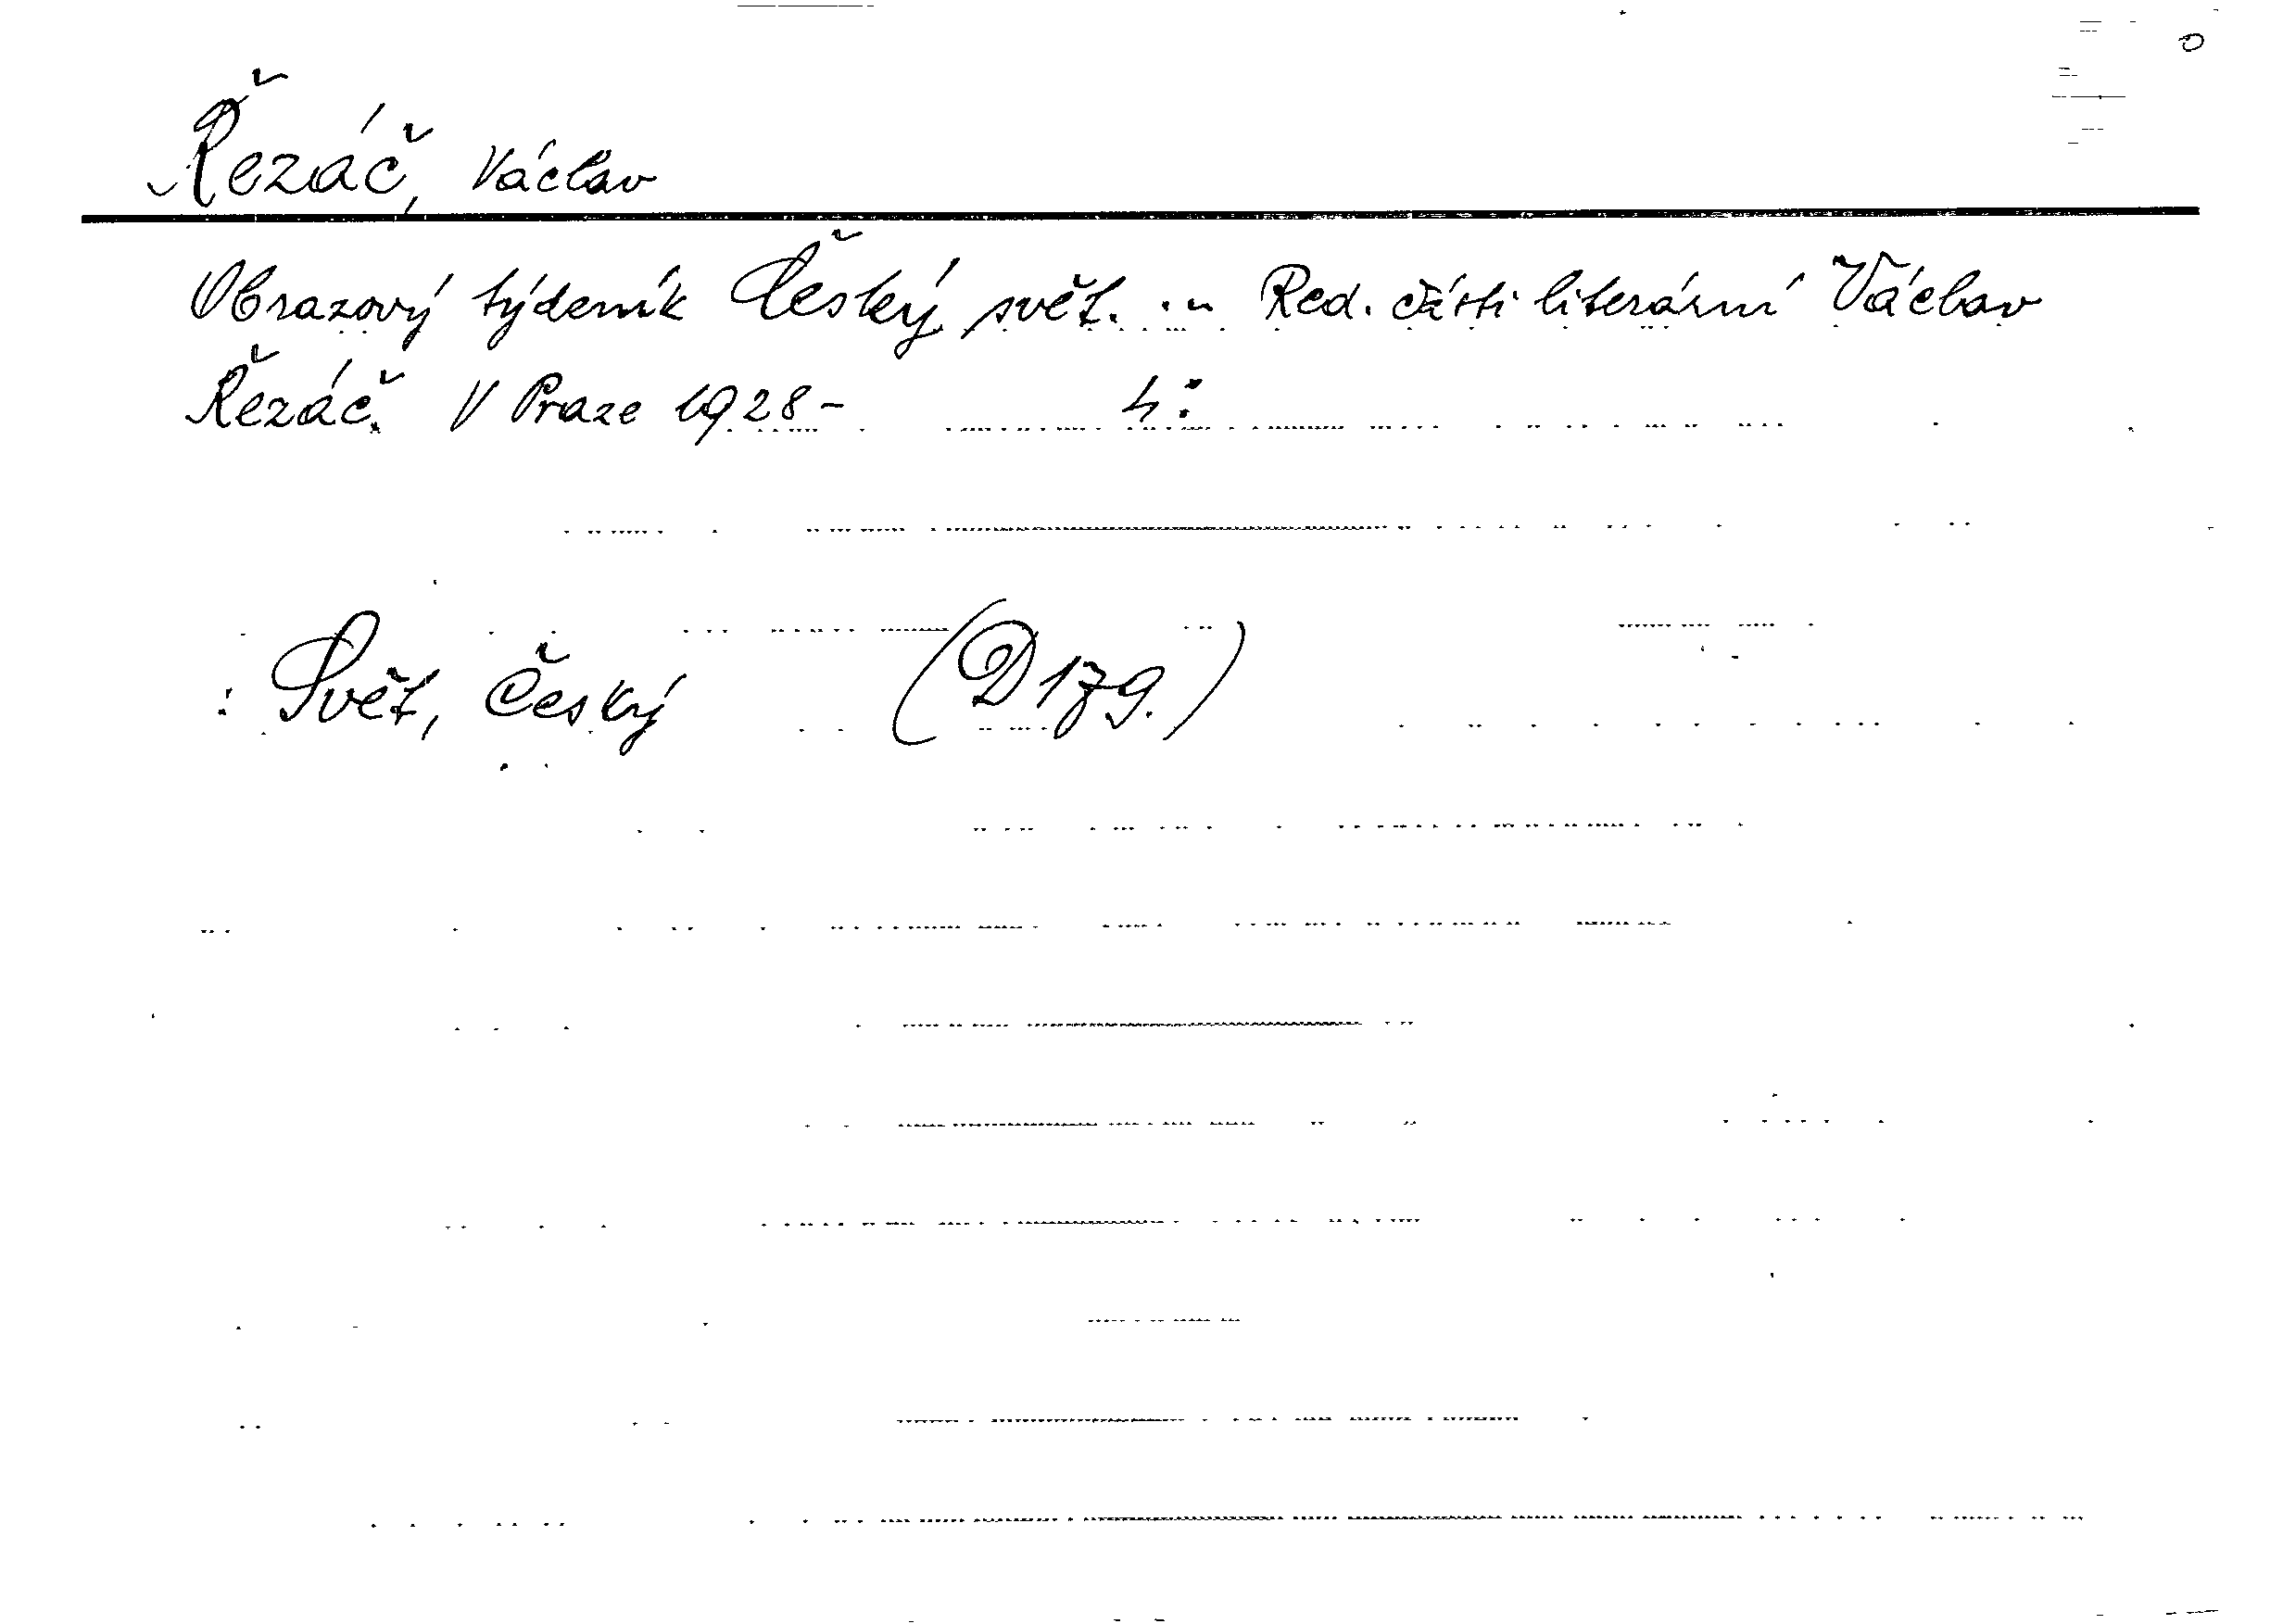 Řezáč, Václav
Obrazový týdeník Český svět. ... Red. části literární Václav
Řezáč. V Praze 1928- 4:
: Svět, Český (D 179.)